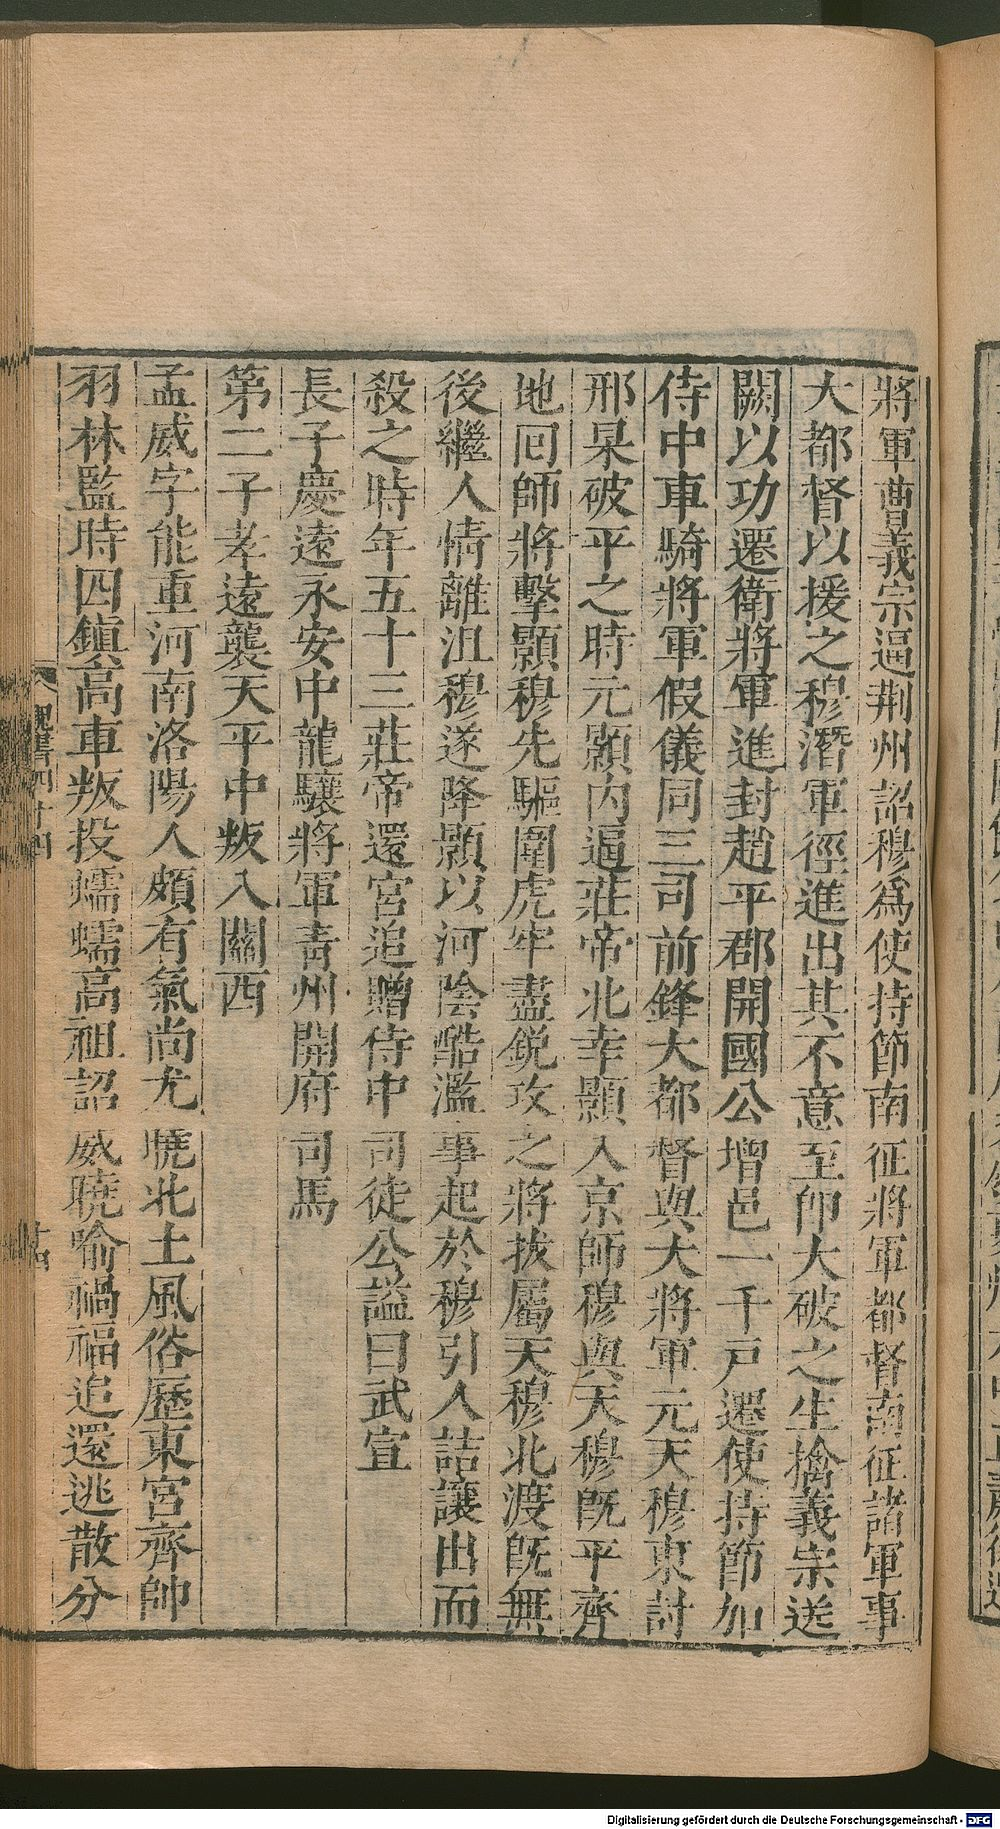 將軍曹義宗逼荆州詔穆爲使持節南征將軍都督南征諸軍事
大都督以援之穆潛軍徑進出其不意至卽大破之生擒義宗送
闕以功遷衛將軍進封趙平郡開國公增邑一千戸遷使持節加
侍中車騎將軍假儀同三司前鋒大都督與大將軍元天穆東討
邢杲破平之時元顥內逼莊帝北幸顥入京師穆與天穆既平齊
地回師將擊顥穆先驅圍虎牢盡銳攻之將拔屬天穆北渡既無
後繼人情離沮穆遂降顥以河陰酷濫事起於穆引入詰讓出而
殺之時年五十三莊帝還宮追贈侍中司徒公諡曰武宣
長子慶遠永安中龍驤將軍靑州開府司馬
第二子孝遠襲天平中叛入關西
孟威字能重河南洛陽人頗有氣尚尤曉北土風俗歷東宮齊帥
羽林監時四鎭高車叛投蠕蠕高祖詔威曉喻禍福追還逃散分
魏書四十四
十四
Digitalisierung gefördert durch die Deutsche Forschungsgemeinschaft - DFG